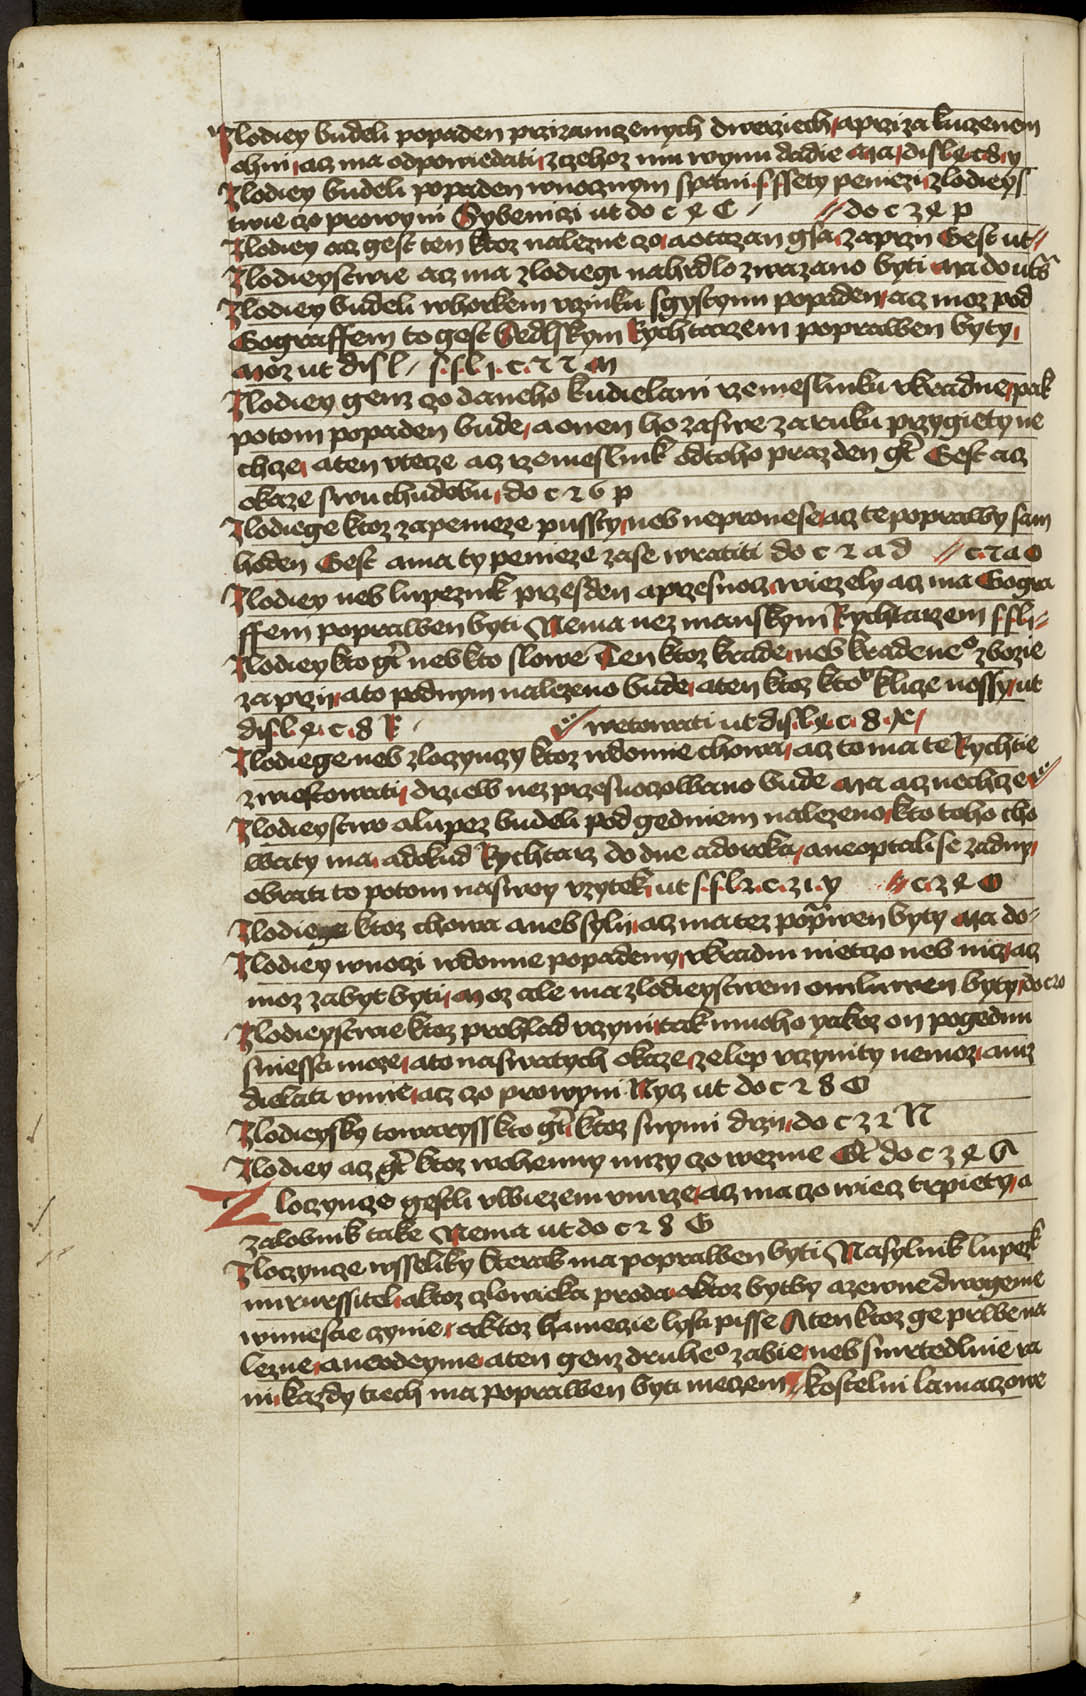 Zlodiey budeli popaden przizamczenych dwerziech a przi zaluczenem
ohni acz ma odpowiedati z czehoz mu wynu dadie Ma disl e c 8 y
Zlodiey budeli popaden wnocznym spani s s sety peniezi zlodieys
twie czo prowyni Sybeniczi ut do c e C
// do c z e p
Zlodiey acz gest ten ktoz nalezne czo a otazan gsa zaprzi Gest ut //
Zlodieystwie acz ma zlodiegi nahrdlo zwazano byti Ma do
Zlodiey budeli whorkem vczinku sgystynu popaden acz moz pod
Gograffem to gest Sedlskym Rychtarzem poprawen byty
Moz ut disl s s l 1 c 2 2 m
Zlodiey genz czo daneho kudielani rzemeslniku vkradne pak
potom popaden bude a onen ho zaswe zaruku przygiety ne
chcze a ten vtecze acz rzemeslnik odtoho prazden gt Gest acz
okaze swu chudobu do c 2 6 p
Zlodiege ktoz zapenieze pussty neb neprones e acz te poprawy sam
hoden Gest a ma ty penieze zase wratiti do c 2 a d // c 2 a o
Zlodiey neb lupeznik przesden a przesnocz wiezely acz ma Gogra
ffem poprawen byti Nema nez manskym Rychtarzem s s l i
Zlodiey kto gt neb kto slowe Ten ktoz krade neb kradene° zbozie
zaprzi a to podnym nalezeno bude a ten ktoz kto° klicze nossy ut
disl e c 8 R
wetowati ut disl e c 8 R
Zlodiege neb zloczynczy ktoz wdomie chowa acz to ma te Rychtie
zwiestowati drziew nez przesnoczowano bude Ma acz nechcze
Zlodieystwo a lupez budeli pod gedniem nalezeno kto toho cho
waty ma a dokud Rychtarz do dne a doroka a neoptali se zadny
obrati to potom naswoy vzytek ut s s l 2 c 21 y // c z e o
Zlodiege ktoz chowa aneb sylij acz ma tez poprwen byty Ma do
Zlodiey wnoczi wdomie popadeny vkradni nietczo neb nicz acz
moz zabyt byti Moz ale ma zlodieystwem omluwen byty do c 20
Zlodieystwie ktoz prohlad vczyni tak mnoho yakoz on pogedni
sniessi moze a to naswatych okaze ze lep vczynity nemoz aniz
dielati vmie acz czo prowyni Nycz ut do c 2 8 O
Zlodieysky towaryss kto gt ktoz snymi drzi do c z 2 N
Zlodiey acz gt ktoz wohenny nuzy czo wezme Gt do c z e A
Zloczyncze gestli vwiezeni vmrze acz ma czo wiecz trpiety a
zalobnik take Nema ut do c 2 8 G
Zloczyncze wsseliky kterak ma poprawen byti Nasylnik lupezk
mirurssitel a ktoz czlowieka proda a ktoz bytby a zewne dwogenie
wmiescie czynie a ktoz hamezie lysti pisse A ten ktoz ge prwe na
lezne a neodeyme a ten genz druhe° zabie neb smrtedlnie ra
ni kazdy tiech ma poprawen byti meczem kostelni lamaczowe